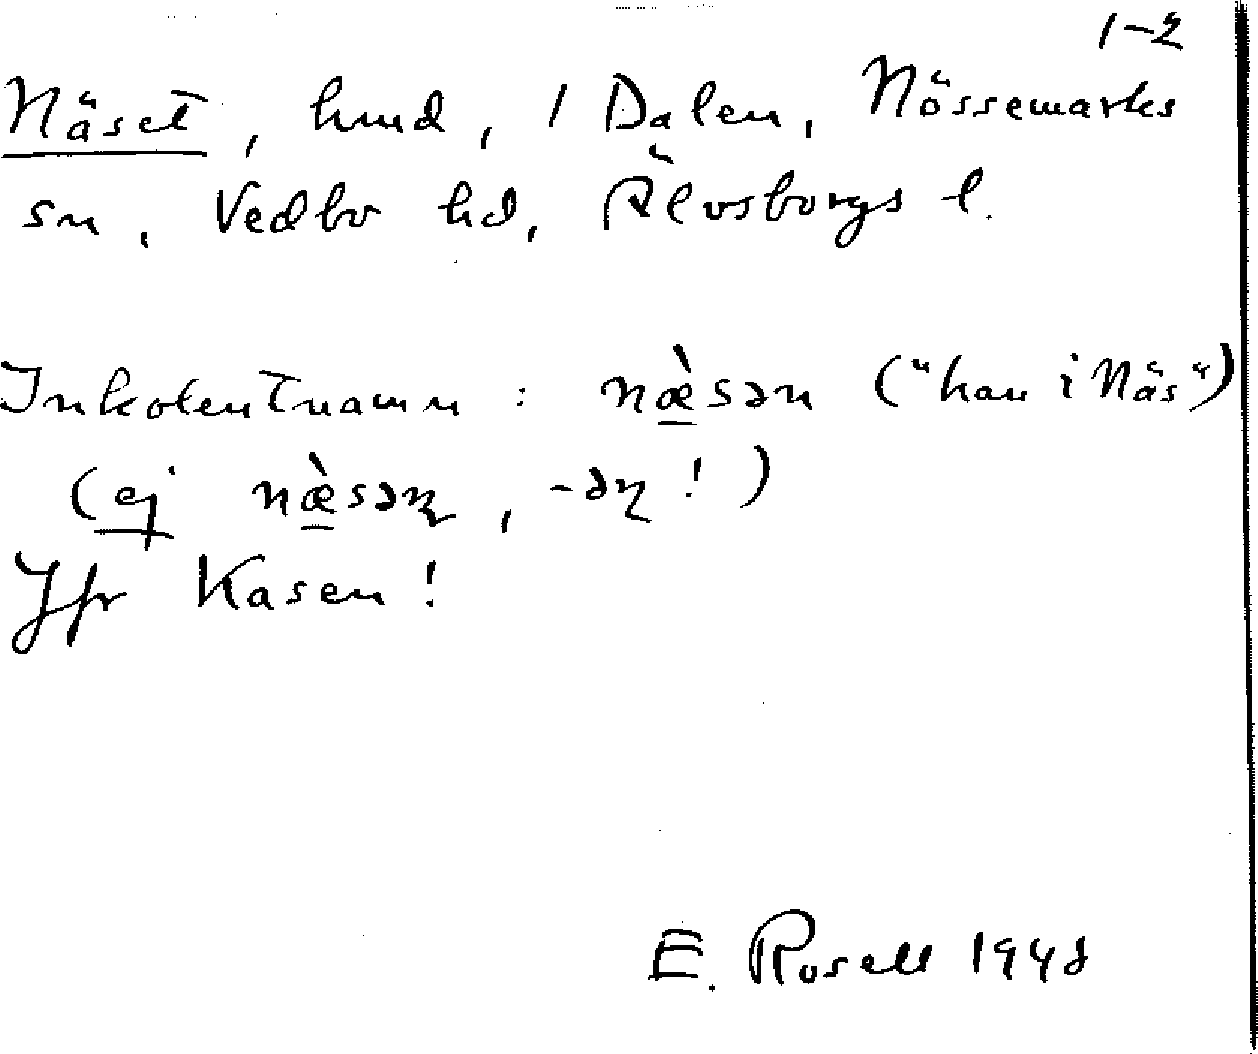 1-2
Näset, hmd, 1 Dalen, Nössemarks
sn, Vedbo hd, Älvsborgs l.
Inkolentnamn : næ̀sən ("han i Näs")
(ej næ̀səꞃ, -əꞃ ! )
Jfr Kasen !
E. Rosell 1948